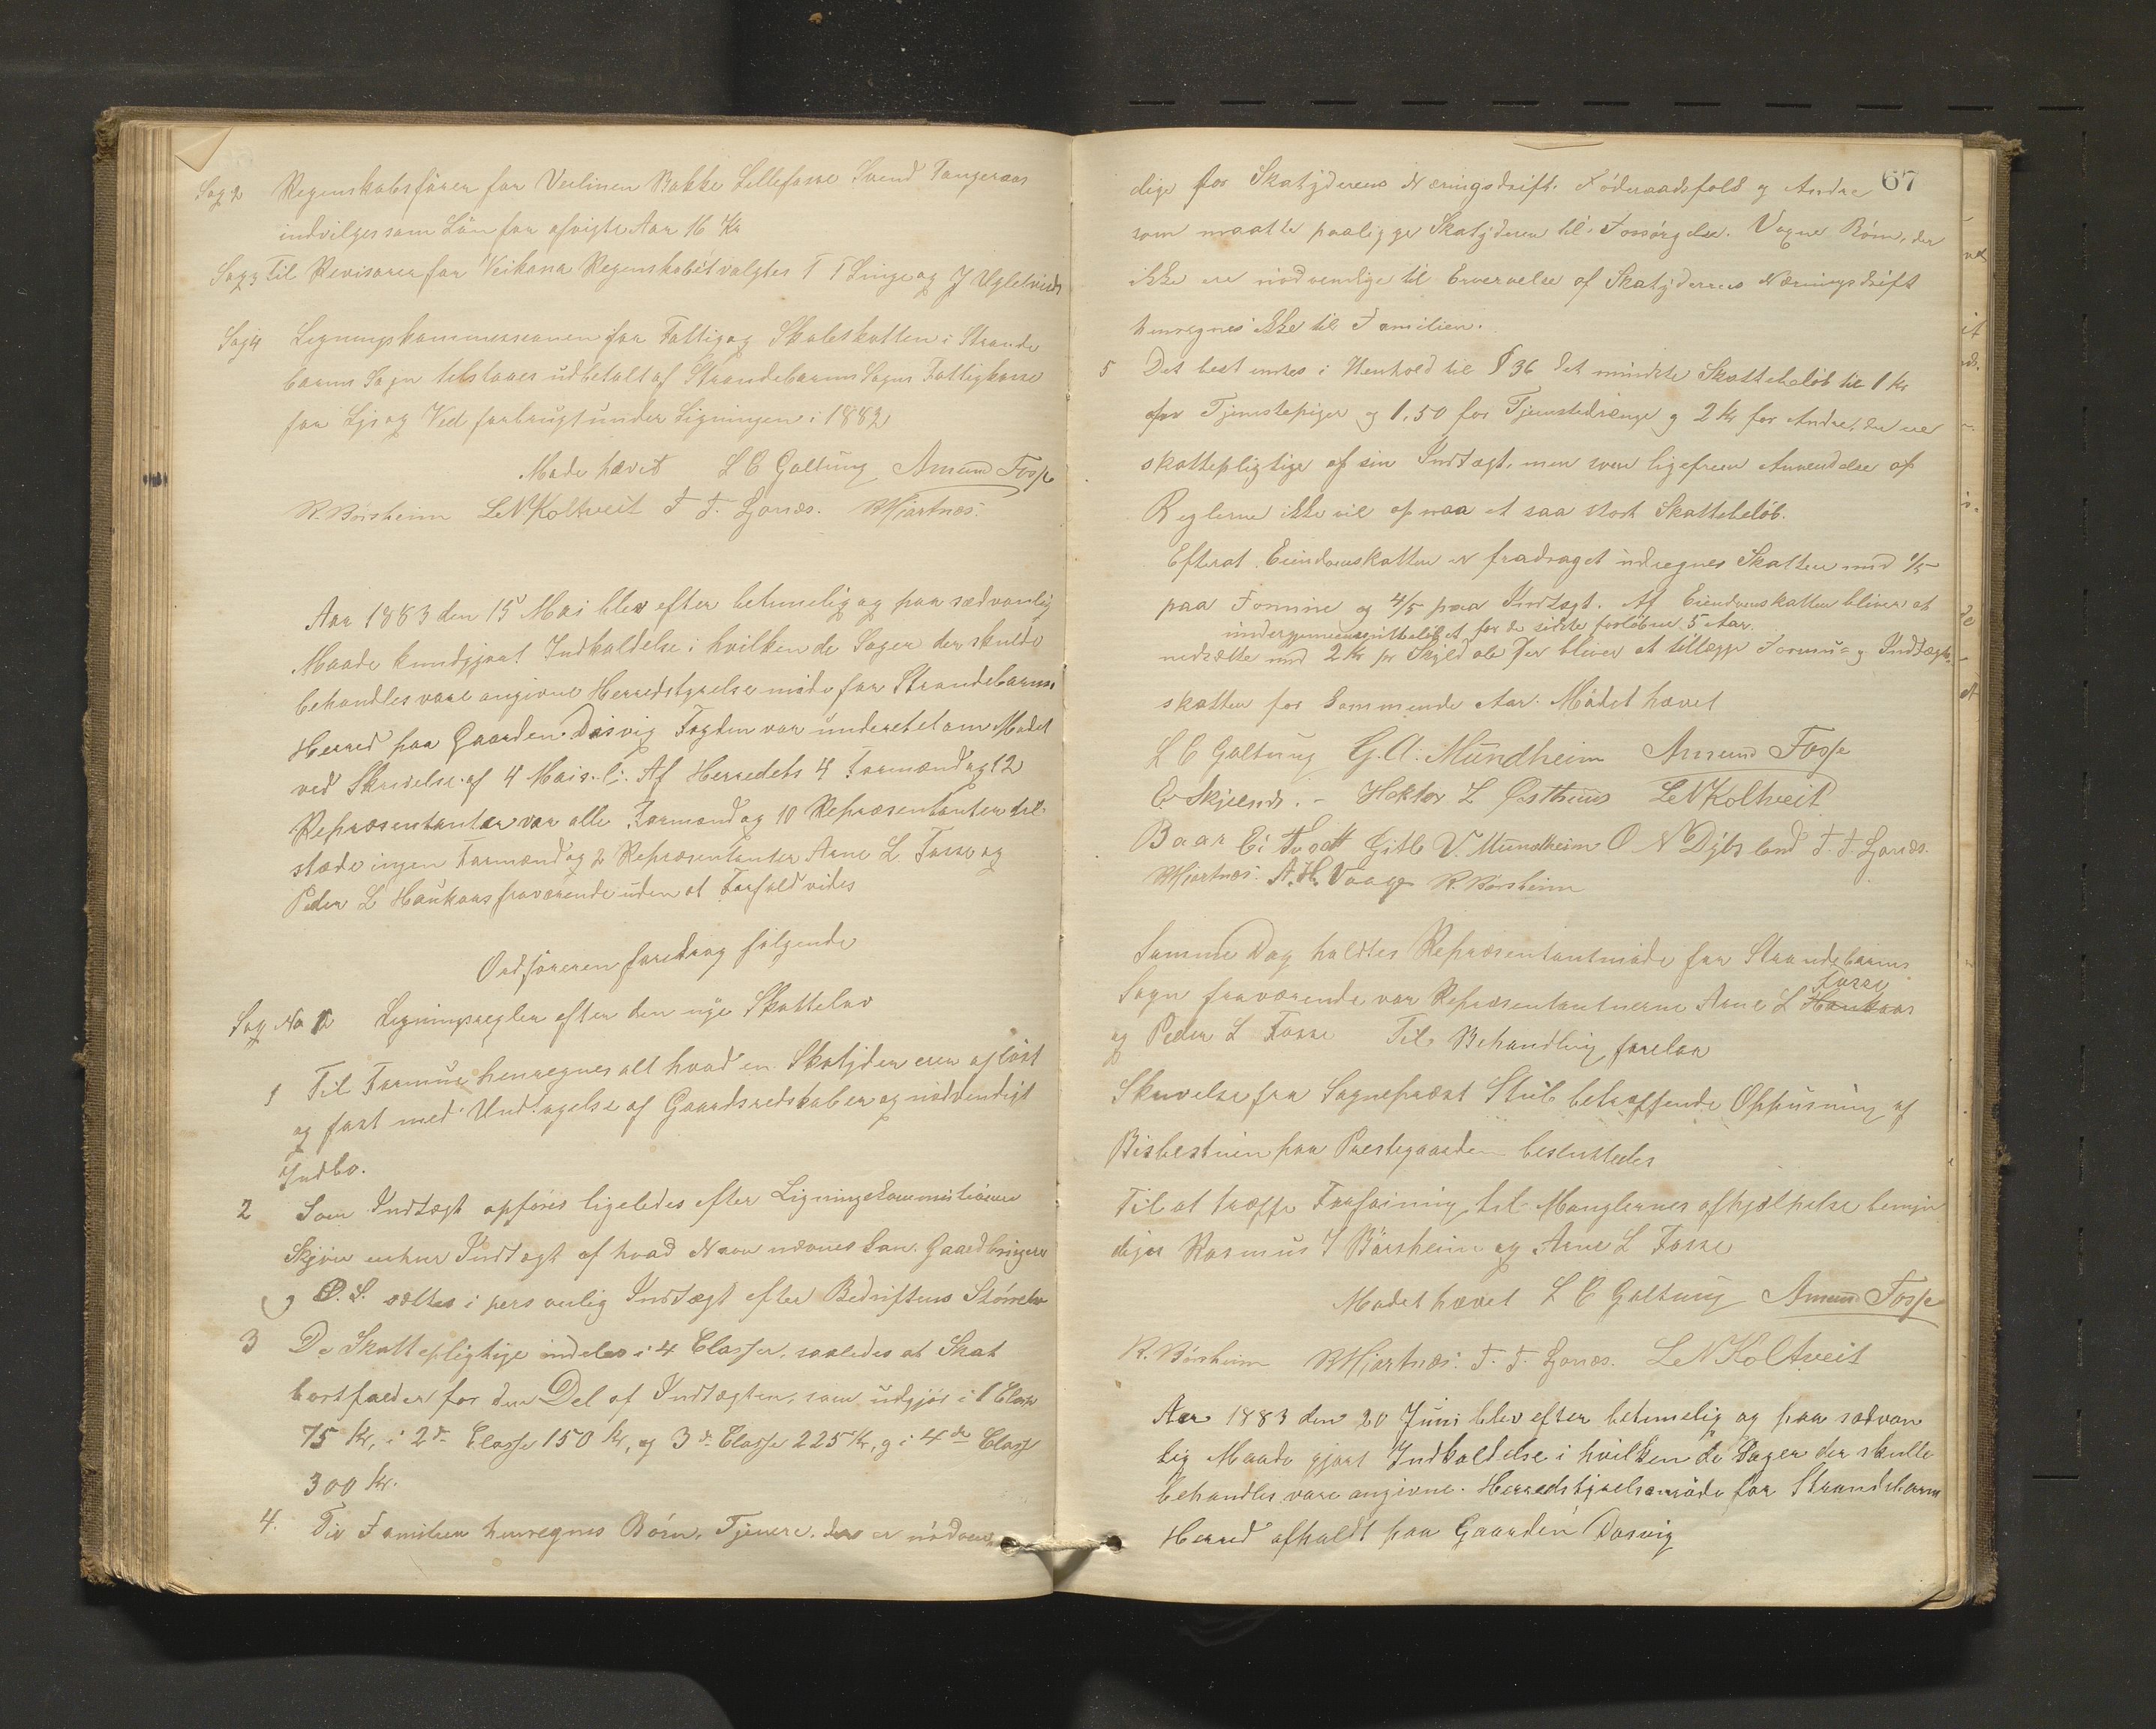 Sag 2 Regnskabsfører for Veilinen Bakke Lillefosse Svend Tangeraas
indvilges som Løn for afvigte Aar 16 Kr
Sag 3 Til Revisorer for Veikasse Regnskabet valgtes T T Linge og J Ugletveidt
Sag 4 Ligningskommissionen for Fattig og Skoleskatten i Strande
barms Sogn tilstaaes udbetalt af Strandebarms Sogns Fattigkasse
for Lys og Ved forbrugt under Ligningen i 1882
Møde hævet L C Galtung Amund Fosse
R. Børsheim L N Koltveit T T. Ljonæs. RHjartnæs.
Aar 1883 den 15 Mai blev efter betimelig og paa sædvanlig
Maade kundgjort Indkaldelse i hvilken de Sager der skulde
behandles vare angivne Herredstyrelse møde for Strandebarms
Herred paa Gaarden Døsvig Fogden var underettet om Mødet
ved Skrivelse af 4 Mai s. l. Af Herredets 4 Formænd og 12
Repræsentanter var alle Formænd og 10 Repræsentanter til
stæde ingen Formænd og 2 Repræsentanter Arne L Fosse og
Peder L Haukaas fraværende uden at Forfald vides
Ordføreren foredrog følgende
Sag No 1 Ligningsregler efter den nye Skattelov
1 Til Formue henregnes alt hvad en Skatyder eier af løst
og fast med Undtagelse af Gaardsredskaber og nødvendigt
Indbo.
2 Som Indtægt opføres ligeledes efter Ligningskommissionens
Skjøn enhver Indtægt af hvad Navn nævnes kan. Gaardbrugere
og O. S. sættes i personlig Indtægt efter Bedriftens Størrelse
3 De Skattepligtige indeles i 4 Classer, saaledes at Skat
bortfalder for den Del af Indtægten, som udgjør i 1 Classe
75 Kr, i 2de Classe 150 Kr, og 3de Classe 225 Kr, og i 4de Classe
300 Kr.
4. Til Familien henregnes Børn, Tjenere, der er nødven
67
dige for Skatyderens Næringsdrift. Föderaadsfolk og Andre
som maatte paaligge Skatyderen til Forsørgelse. Voxne Børn, der
ikke ere nødvendige til Erværvelse af Skatyderens Næringsdrift
henregnes ikke til Familien.
5 Det bestemtes i Henhold til § 36 det mindste Skattebeløb til 1 Kr
for Tjenestepiger og 1.50 for Tjenestedrenge og 2 Kr for Andre, der ere
skattepligtige af sin Indtægt, men som ligefrem Anvendelse af
Reglerne ikke vil opnaa et saa stort Skattebeløb.
Efterat Eiendomskatten er fradraget udregnes Skatten med 1/5
paa Formue og 4/5 paa Indtægt. Af Eiendomskatten bliver at
undergjennemsnittsbeløbet for de sidste forløbne 5 Aar.
nedsætte med 2 Kr pr Skylddaler der bliver at tillægge Formue og Indtægts
skatten for kommende Aar. Mødet hævet
L C Galtung G. A. Mundheim Amund Fosse
O Skjelnes. - Hektor L Østhuus L N Koltveit
Baar Ei Tvedt Gitle V. Mundheim O N Dybsland T. T. Ljonæs.
RHjartnæs. A. H. Vaage R. Børsheim
Samme Dag holdtes Repræsentantmøde for Strandebarms
Fosse
Sogn fraværende var Repræsentantnerne Arne L Haukaas
og Peder L Fosse Til Behandling forelaa
Skrivelse fra Sogneprest Stub betræffende Oppusning af
Bispestuen paa Prestegaarden besluttedes
Til at træffe Forføining til Manglernes afhjælpelse bemyn
diges Rasmus J Børsheim og Arne L Fosse
Mødet hævet L C Galtung Amund Fosse
R. Børsheim RHjartnæs. T. T. Ljonæs. L N Koltveit
Aar 1883 den 20 Juni blev efter betimelig og paa sædvan
lig Maade gjort Indkaldelse i hvilken de Sager der skulle
behandles vare angivne. Herredstyrelsemøde for Strandebarm
Herred afholdt paa Gaarden Døsvig